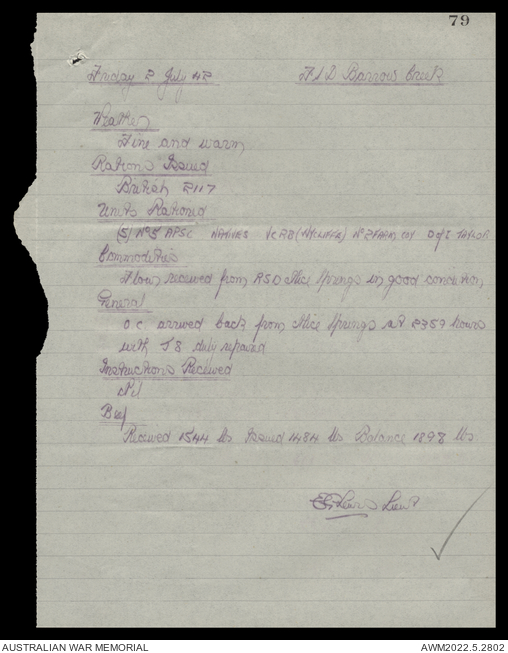 79
Friday 2 July 42 FSD Barrow Creek
Weather
Fine and warm
Rations Issued
British 2117
Units Rationed
(5) No 5 APSC NATIVES VCRB (WYCLIFFE) No 2 FARM COY D of S TAYLOR
Commodities
Flour received from RSD Alice Springs in good condition
General
O.C. arrived back from Alice Springs at 2359 hours
with 58 duly repaired
Instructions Received
Nil
Beef
Received 1544 lbs Issued 1484 lbs Balance 1898 lbs
Lieut
AUSTRALIAN WAR MEMORIAL AWM2022.5.2802